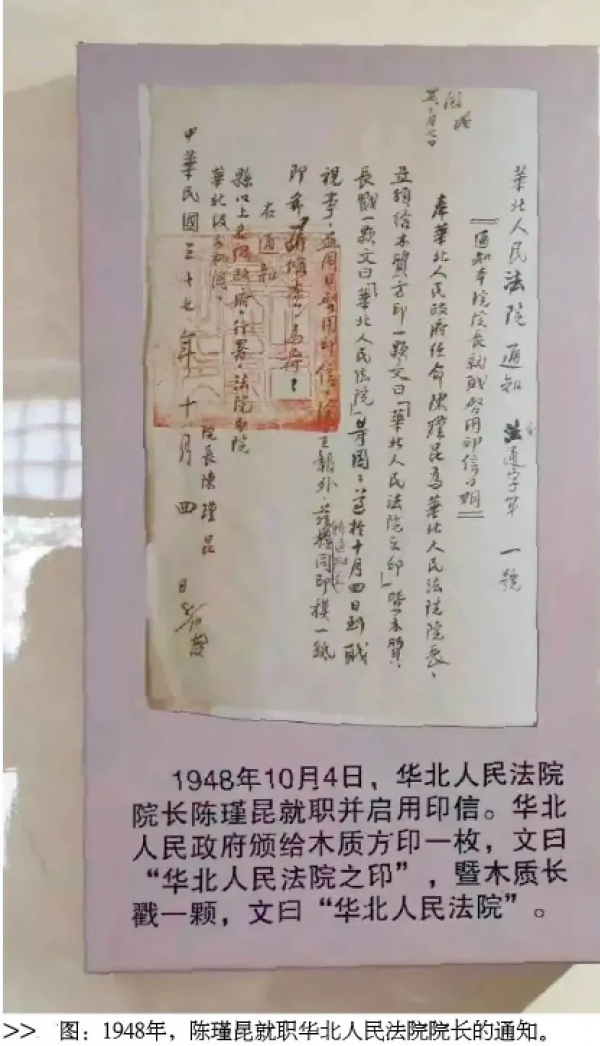 華北人民法院 通知 法通字第一號
通知本院院長就職啓用印信日期
奉華北人民政府任命陳瑾昆爲華北人民法院院長，
並頒給木質方印一顆文曰「華北人民法院之印」暨木質
長戳一顆文曰「華北人民法院」等因；遵於十月四日到職
視事，並同日啓用印信，除呈報外，
同印模一紙
即希
右通知
縣以上各級政府，行署，法院
華北
院長 陳瑾昆
中華民國三十七年 十 月 四 日
1948年10月4日，华北人民法院
院长陈瑾昆就职并启用印信。华北
人民政府颁给木质方印一枚，文曰
“华北人民法院之印”，暨木质长
戳一颗，文曰“华北人民法院”。
>> 图：1948年，陈瑾昆就职华北人民法院院长的通知。